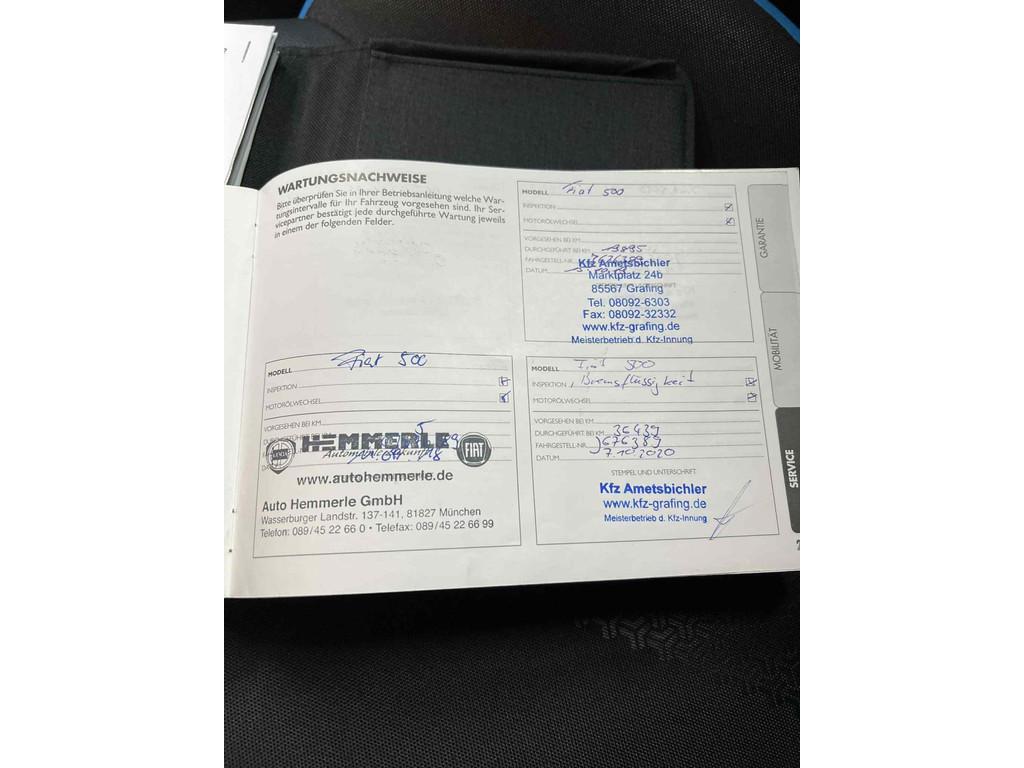 WARTUNGSNACHWEISE
Bitte überprüfen Sie in Ihrer Betriebsanleitung welche War-
tungsintervalle für Ihr Fahrzeug vorgesehen sind. Ihr Ser-
vicepartner bestätigt jede durchgeführte Wartung jeweils
in einem der folgenden Felder.
MODELL Fiat 500
INSPEKTION
MOTORÖLWECHSEL
VORGESEHEN BEI KM
DURCHGEFÜHRT BEI KM
FAHRGESTELL-NR. 7676389
DATUM
Kfz Ametsbichler
Marktplatz 24b
85567 Grafing
Tel. 08092-6303
Fax: 08092-32332
www.kfz-grafing.de
Meisterbetrieb d. Kfz-Innung
MODELL Fiat 500
INSPEKTION
MOTORÖLWECHSEL
VORGESEHEN BEI KM
HEMMERLE
FIAT
www.autohemmerle.de
Auto Hemmerle GmbH
Wasserburger Landstr. 137-141, 81827 München
Telefon: 089/45 22 66 0 • Telefax: 089/45 22 66 99
MODELL Fiat 500
INSPEKTION, Bremsflüssigkeit
MOTORÖLWECHSEL
VORGESEHEN BEI KM
DURCHGEFÜHRT BEI KM 36439
FAHRGESTELL-NR. J676389
DATUM 7.10.2020
STEMPEL UND UNTERSCHRIFT
Kfz Ametsbichler
www.kfz-grafing.de
Meisterbetrieb d. Kfz-Innung
GARANTIE
MOBILITÄT
SERVICE